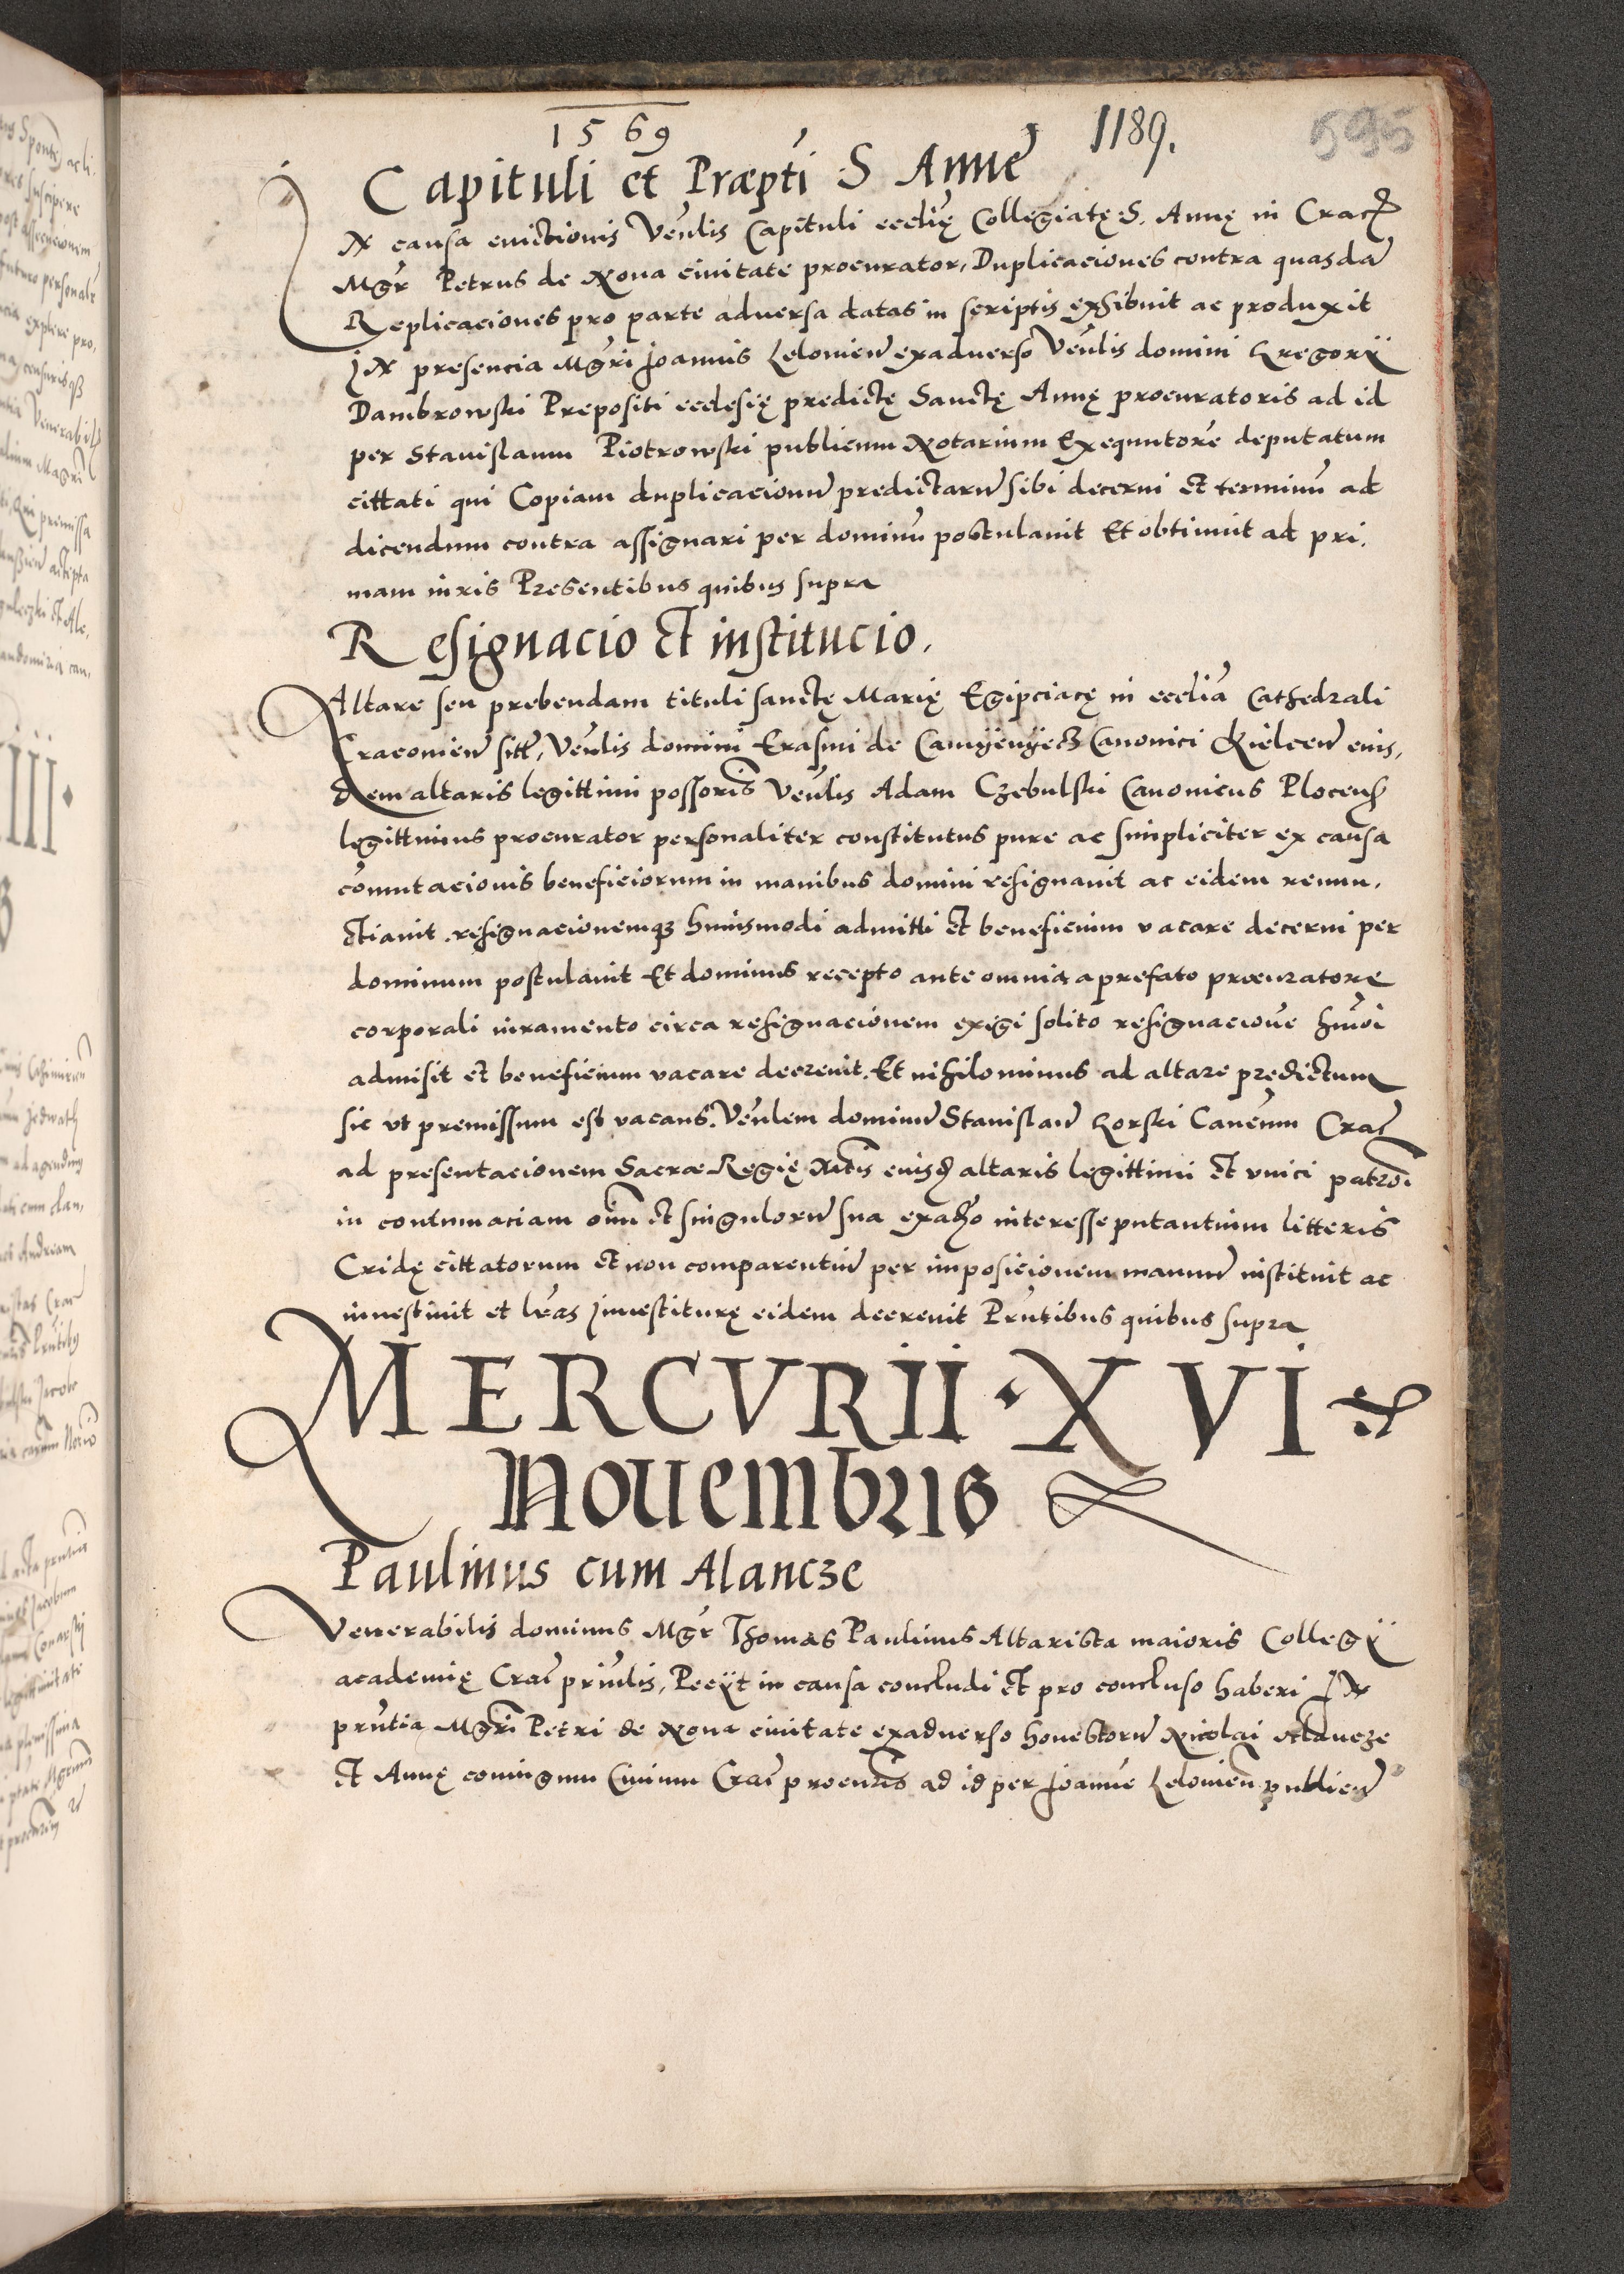 1569
1189.
595
Capituli et Præpti S Anne
IN causa euictionis Venlis Capituli ecclię Collegiatę S. Annę in Crac
Mgr Petrus de Noua ciuitate procurator, Duplicaciones contra quasda
Replicaciones pro parte aduersa datas in scriptis exhibuit ac produxit
IN presencia Mgri Joannis Leloviens exaduerso Venlis domini Gregorii
Dambrowski Prepositi ecclesię predictę Sanctę Annę procuratoris ad id
per Stanislaum Piotrowski publicum Notarium Exequutore deputatum
cittati qui Copiam duplicacionum predictarum sibi decerni et terminu ad
dicendum contra assignari per dominu postulauit Et obtinuit ad pri,
mam iuris Presentibus quibus supra
Resignacio et institucio.
Altare seu prebendam tituli sanctę Marię Egipciacę in ecclia Cathedrali
Cracouien sitt, Venlis domini Erasmi de Camyenyecz Canonici Kielcen eius,
dem altaris legittimi possoris Venlis Adam Czebulski Canonicus Plocens
legittimus procurator personaliter constitutus pure ac simpliciter ex causa
comutacionis beneficiorum in manibus domini resignauit ac eidem renun,
ctiauit. resignacionemq3 huiusmodi admitti et beneficium vacare decerni per
dominum postulauit Et dominus recepto ante omnia a prefato procuratore
corporali iuramento circa resignacionem exigi solito resignacione hmoi
admisit et beneficium vacare decreuit. Et nihilominus ad altare prędictum
sic vt premissum est vacans. Venlem dominum Stanislaum Gorski Canenum Crac
ad presentacionem Sacræ Regię Mtis eiusd altaris legittimi et vnici patroi
in contumaciam oim et singulorum sua exadho interesse putantium litteris
Cridę cittatorum et non comparentium per imposicionem manuum instituit ac
inuestiuit et lras Inuestiturę eidem decreuit Prntibus quibus supra
MERCVRII · XVI
Nouembris
Paulinus cum Alancze
Venerabilis dominus Mgr Thomas Paulinus Altarista maioris Collegii
academię Crac prinlis, Peciit in causa concludi et pro concluso haberi IN
prntia Mgri Petri de Noua ciuitate exaduerso honestorum Nicolai Alancze
et Annę coniugum Ciuium Crac procuris ad id per Joanne Lelovien publicum